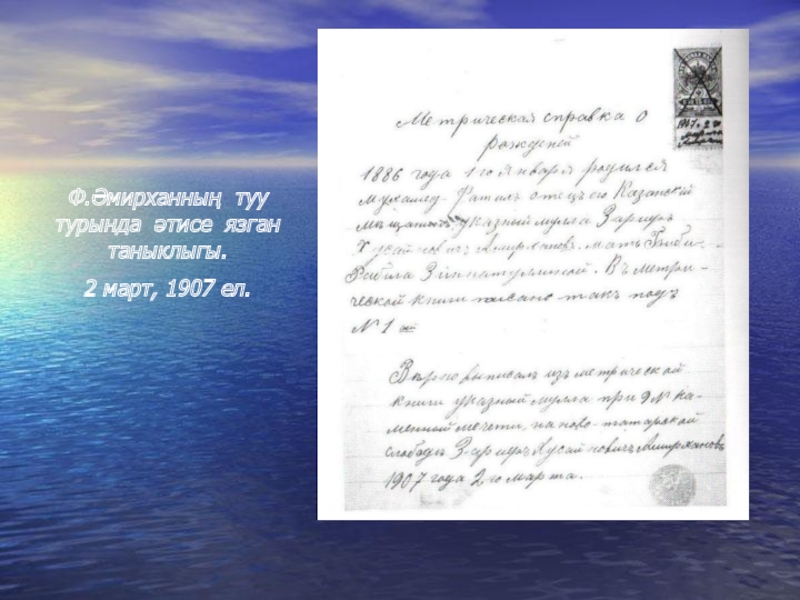 Ф.Әмирханның туу
турында әтисе язган
таныклыгы.
2 март, 1907 ел.
Метрическая справка о
рождении
1886 года 1го января родился
Мухамед-Фатихъ отецъ его Казанский
указный мулла Зариръ
Хусайновичъ Амирхановъ. мать Биби-
Рабига Зиннатуллиной. Въ метри-
ческой книги писано такъ подъ
№ 1
Вѣрно выписалъ изъ метрической
книги указный мулла при 9 № ка-
менной мечети, на ново-татарской
слободѣ Зариръ Хусайновичъ Амирхановъ
1907 года 2го марта.